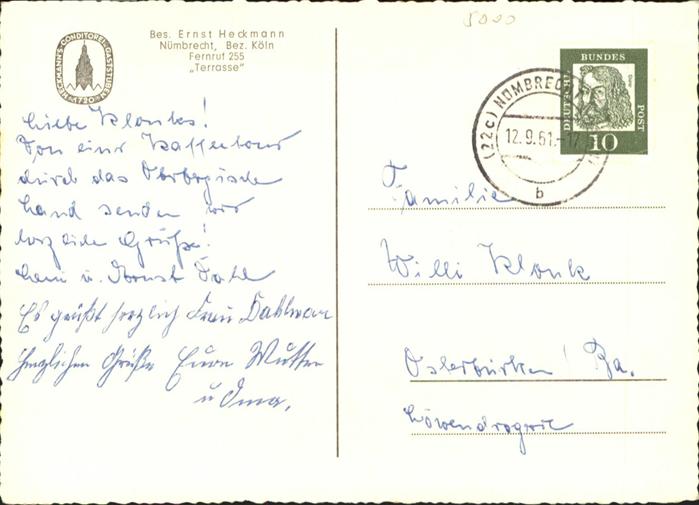 5000
Bes. Ernst Heckmann
Nümbrecht, Bez. Köln
Fernruf 255
„Terrasse"
HECKMANN'S CONDITOREI-GASTSTUBEN
1720
Liebe Klonks!
Von einer Kaffeetour
durch das Oberbergische
Land senden wir
herzliche Grüße!
u. Ernst
Es grüßt herzlich Frau Dahlmann
Herzlichen Grüße Eure Mutter
u Oma.
DEUTSCHE BUNDES POST
Dürer
10
(22c) NÜMBRECHT
12.9.61.-17
b
Familie
Willi Klonk
Osterburken / Ba.
Löwendrogerie